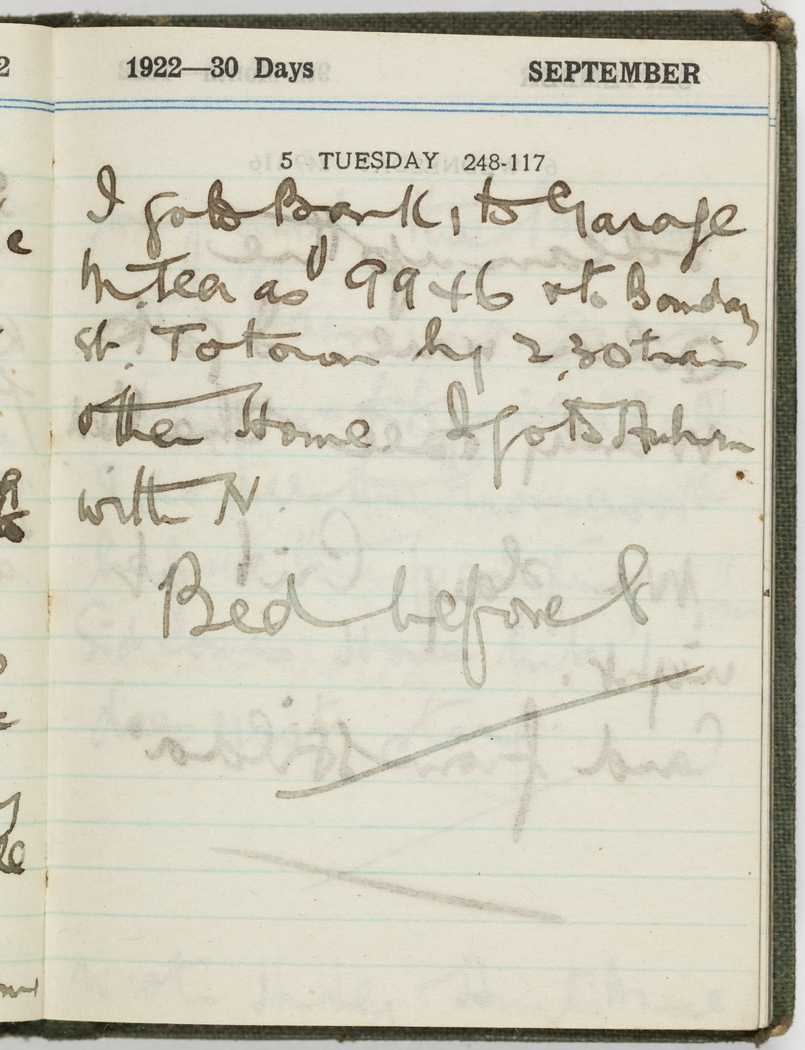 1922—30 Days SEPTEMBER
5 TUESDAY 248-117
I go to Bank, to Garage
tea as 9946 at
St. To town by 2.30 train
then Home. I go to Auburn
with N.
Bed before 8